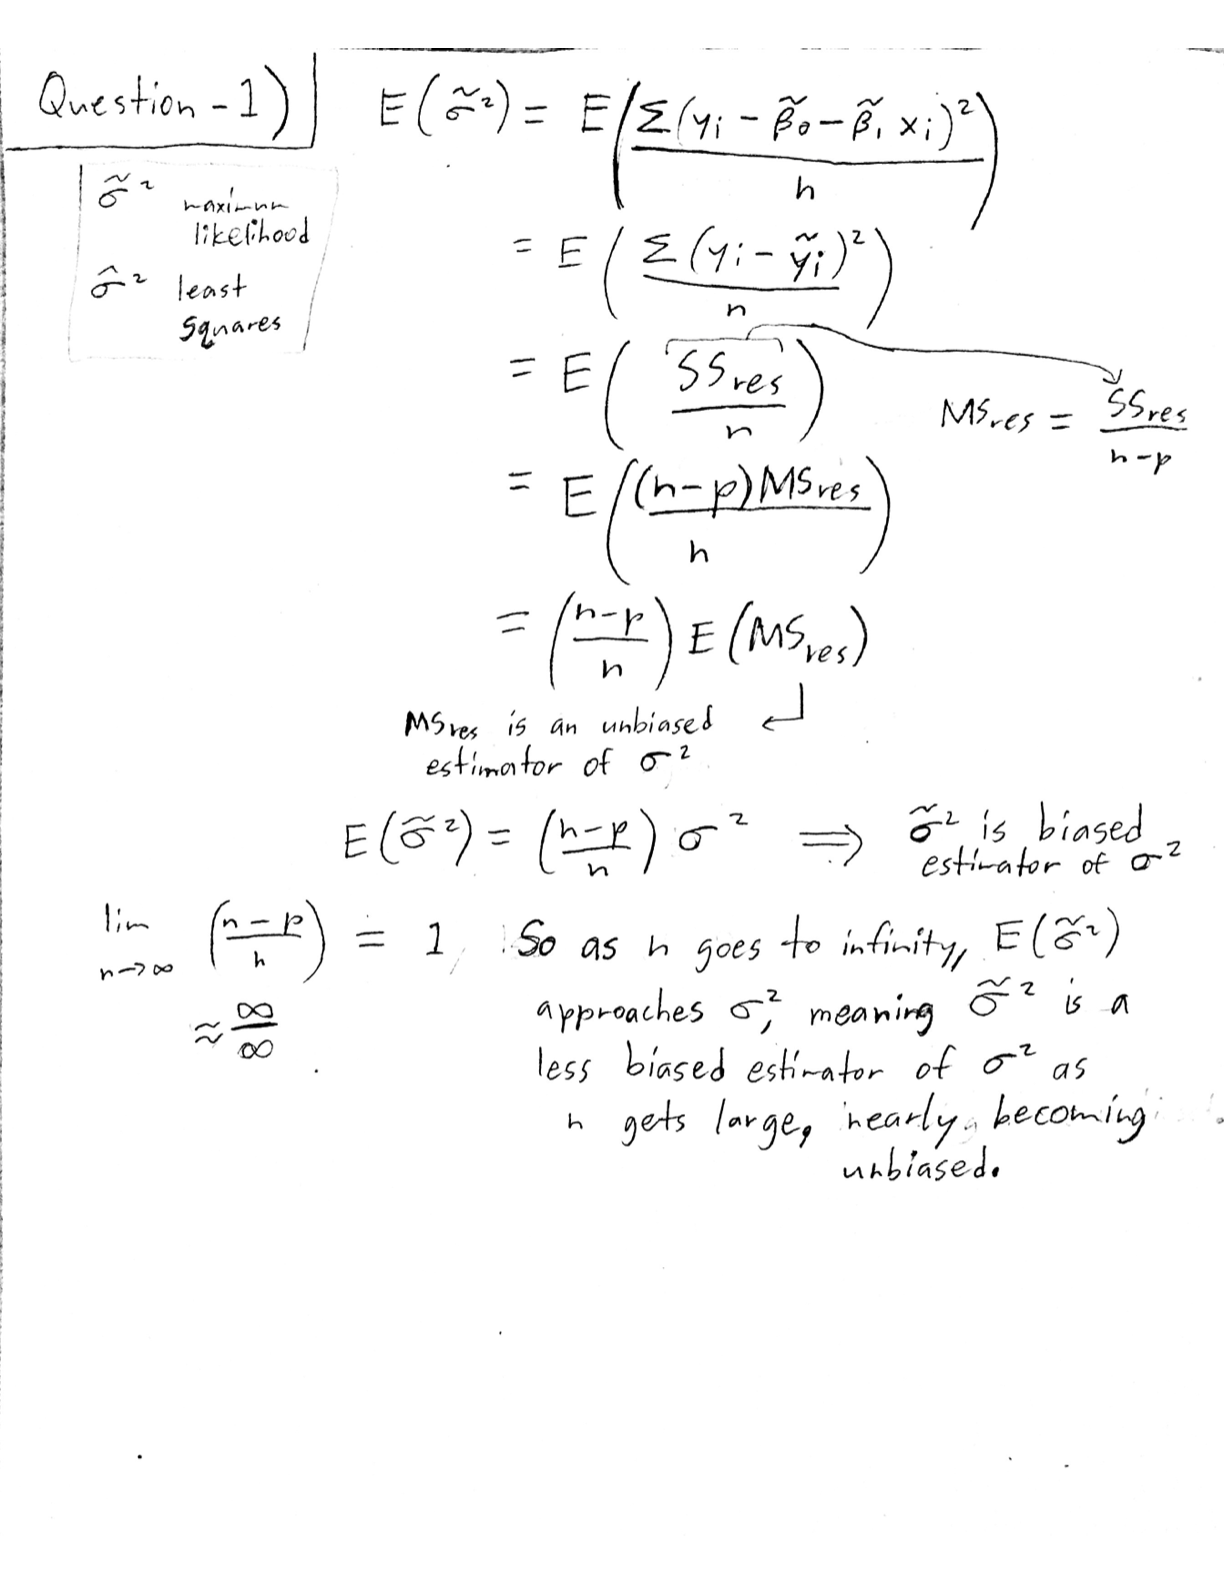 Question-1)
E(σ̃²) = E(Σ(yᵢ - β̃₀ - β̃₁ xᵢ)² / n)
σ̃² maximum
likelihood
σ̂² least
squares
= E(Σ(yᵢ - ỹᵢ)² / n)
= E(SSres / n)
MSres = SSres / n-p
= E((n-p)MSres / n)
= (n-p / n) E(MSres)
MSres is an unbiased
estimator of σ²
E(σ̃²) = (n-p / n) σ² ⟹ σ̃² is biased
estimator of σ²
lim n→∞ (n-p / n) = 1, So as n goes to infinity, E(σ̃²)
≈ ∞/∞
approaches σ², meaning σ̃² is a
less biased estimator of σ² as
n gets large, nearly becoming
unbiased.